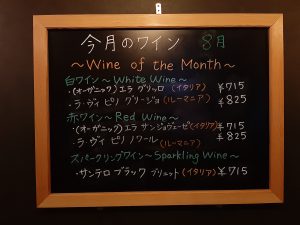 今月のワイン 8月
～Wine of the Month～
白ワイン～White Wine～
・(オーガニック)エラ グリッロ (イタリア) ¥715
・ラ・ヴィ ピノ グリージョ (ルーマニア) ¥825
赤ワイン～Red Wine～
・(オーガニック)エラ サンジョヴェーゼ(イタリア) ¥715
・ラ・ヴィ ピノ ノワール (ルーマニア) ¥825
スパークリングワイン～Sparkling Wine～
・サンテロ ブラック ブリュット (イタリア) ¥715